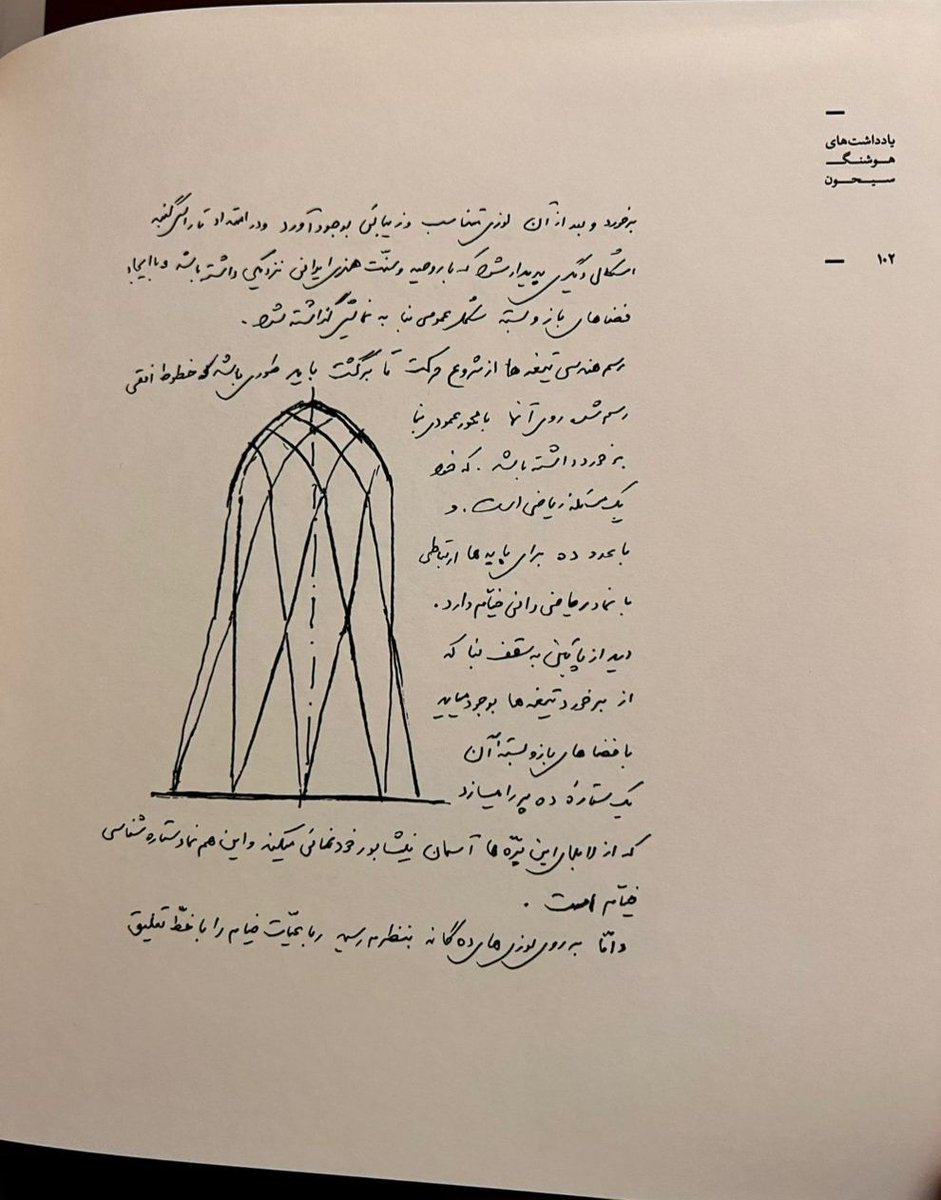 یادداشت‌های
هوشنگ
سیحون
۱۰۲
برخورد و بعد از آن لوزی متناسب و زیبائی بوجود آورد و در امتداد تا رأس گنبد
اشکال دیگری پدیدار شود که با روحیه و سنّت هنری ایرانی نزدیکی داشته باشد و با ایجاد
فضاهای باز و بسته شکل عمومی بنا به نمایش گذاشته شود.
رسم هندسی تیغه ها از شروع حرکت تا برگشت باید طوری باشد که خطوط افقی
رسم شده روی آنها با محور عمودی بنا
برخورد داشته باشد. که خود
یک مسئله ریاضی است. و
با عدد ده برای پایه ها ارتباطی
با نماد ریاضی دانی خیّام دارد.
دید از پائین به سقف بنا که
از برخورد تیغه ها بوجود میاید
با فضاهای باز و بستهٔ آن
یک ستارهٔ ده پر را میسازد
که از لابلای این پرّه ها آسمان نیشابور خودنمائی میکند و این هم نماد ستاره شناسی
خیّام است.
و امّا به روی لوزی های ده گانه بنظرم رسید رباعیّات خیام را با خطّ تعلیق